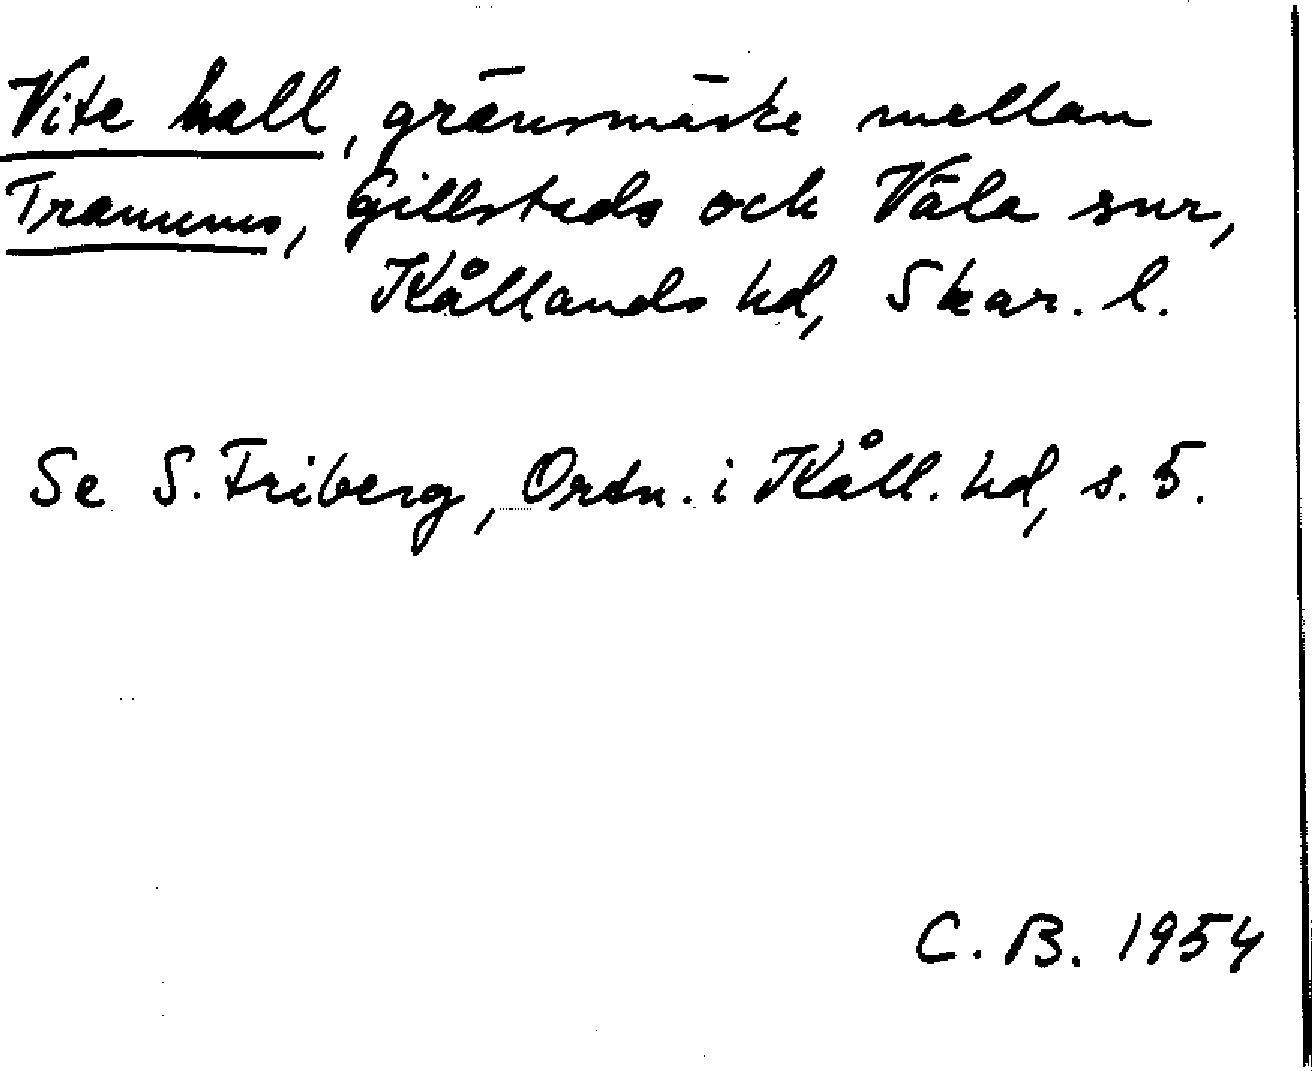 Vite hall, gränsmärke mellan
Tranums, Gillstads och Väla snr,
Kållands hd, Skar. l.
Se S. Friberg, Ortn. i Kåll. hd, s. 5.
C. B. 1954